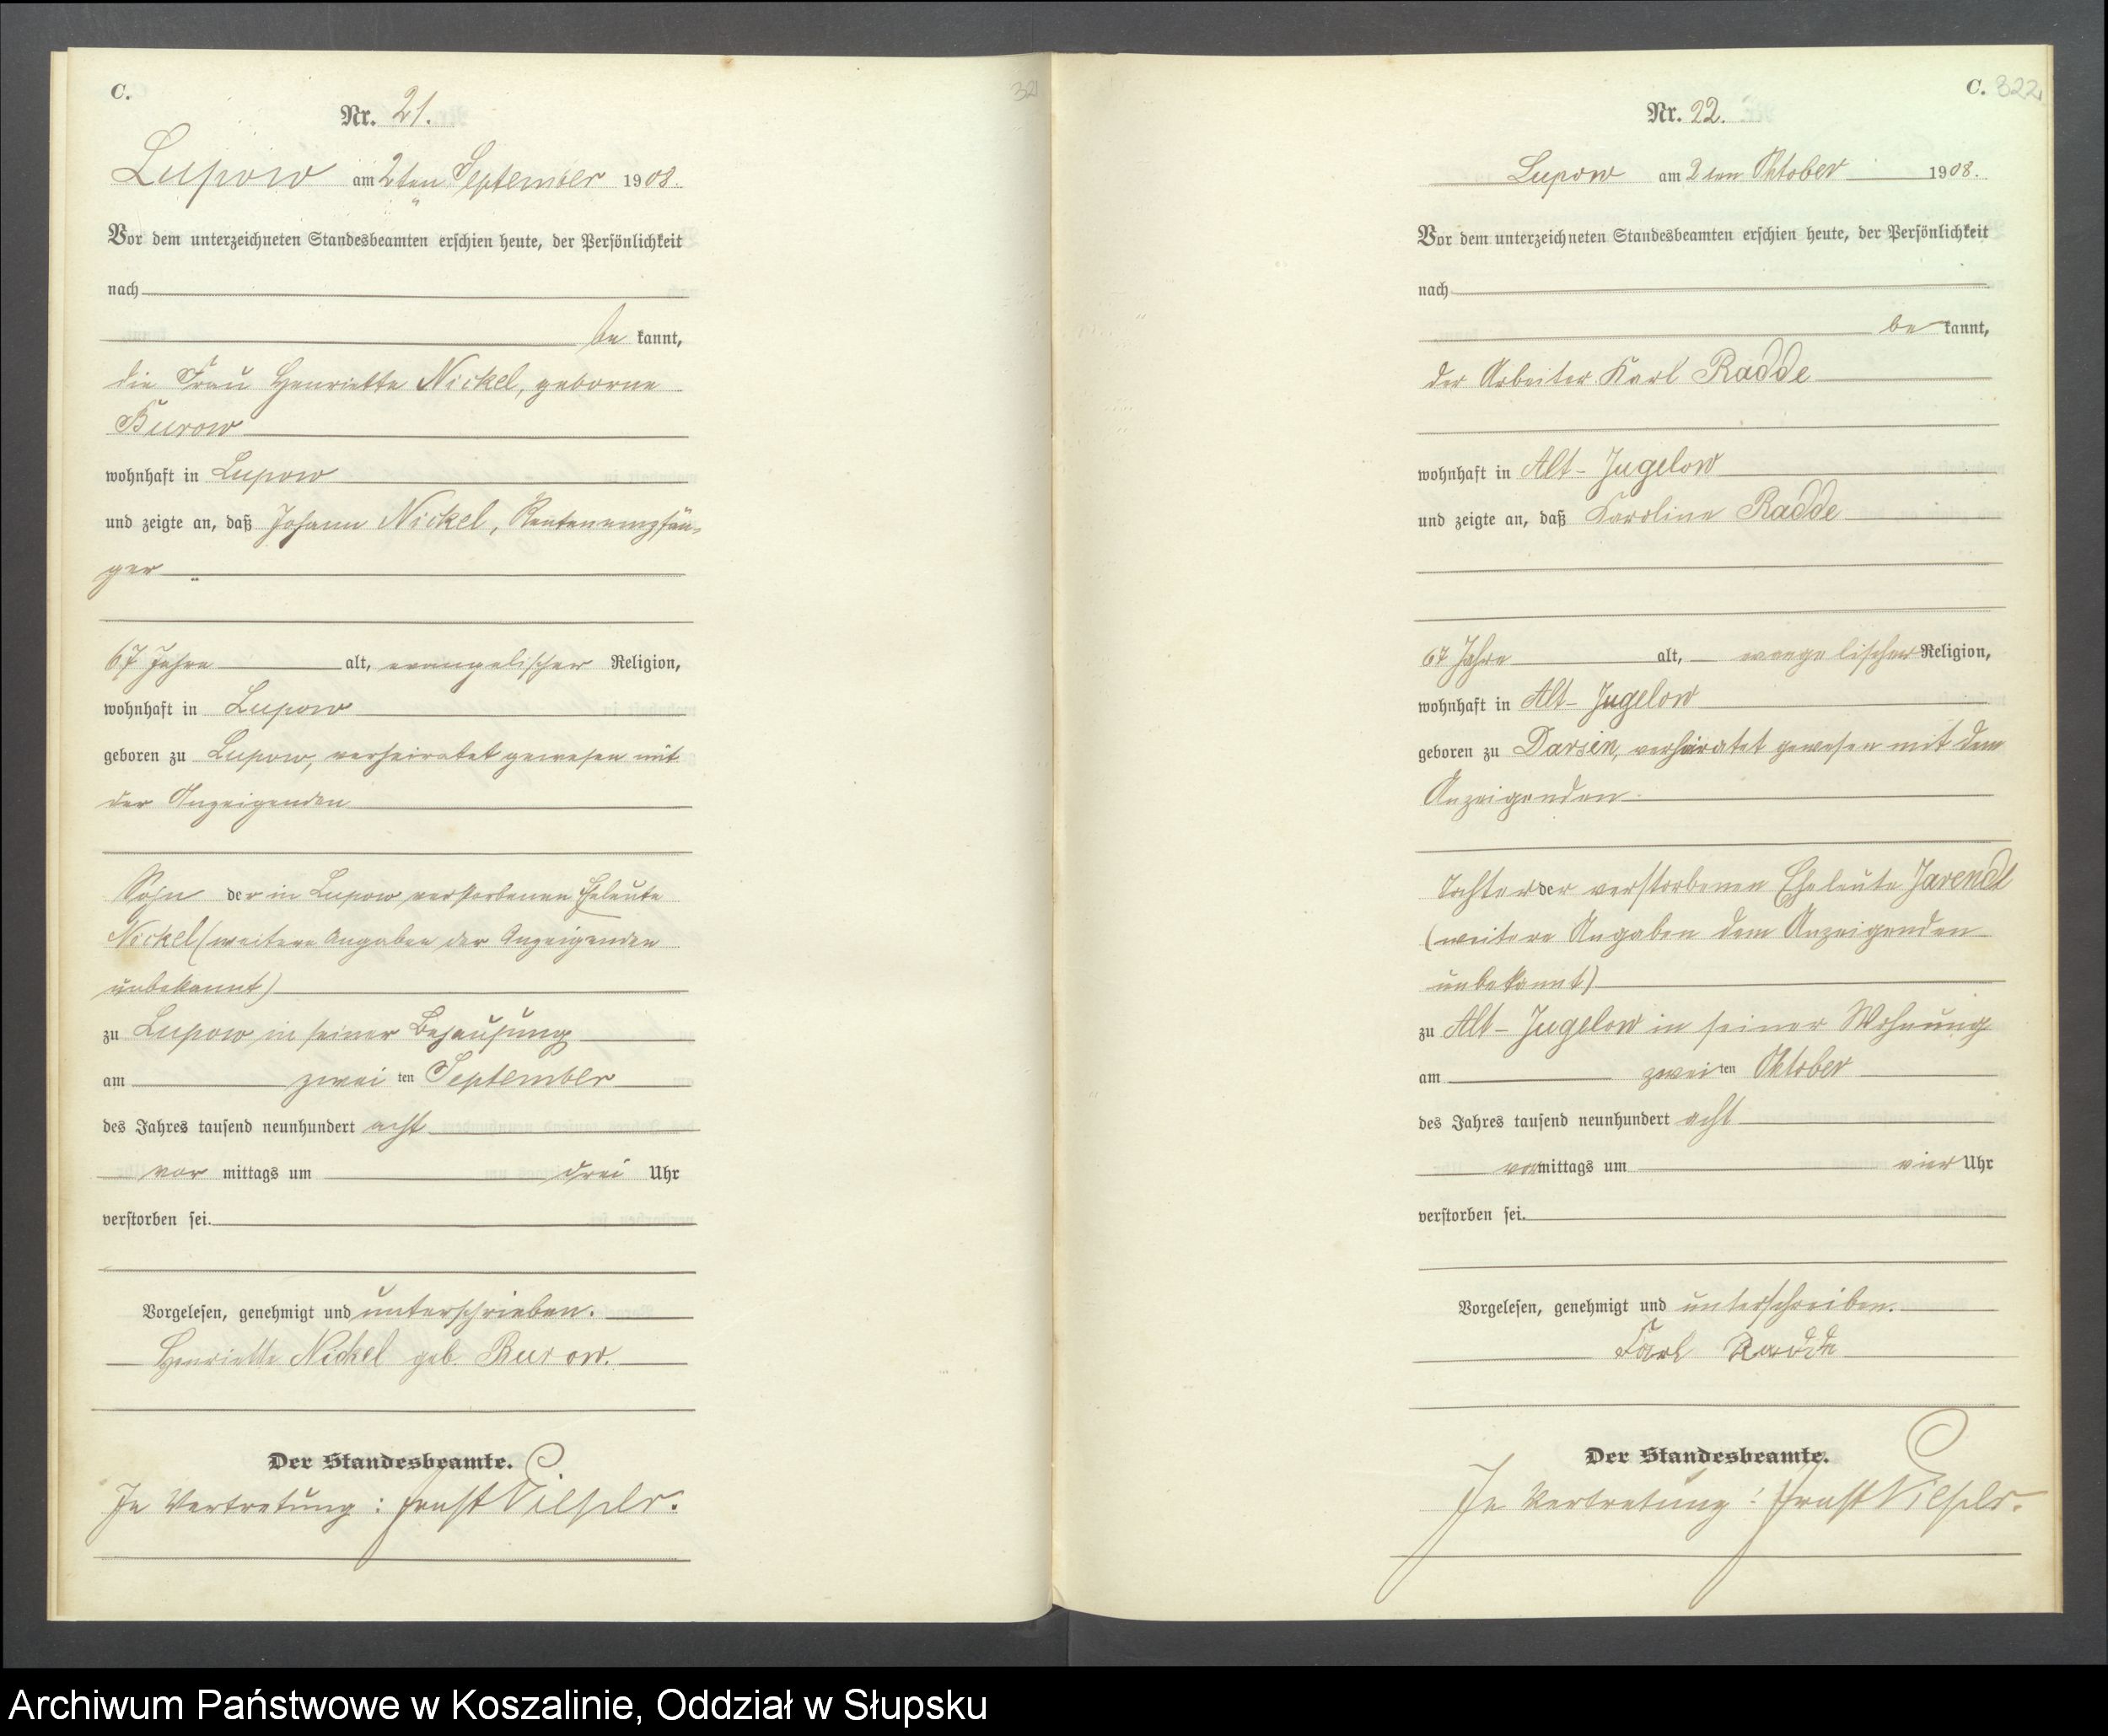 C.
321
Nr. 21.
Lupow am 2ten September 1908.
Vor dem unterzeichneten Standesbeamten erschien heute, der Persönlichkeit
nach
be kannt,
die Frau Henriette Nickel, geborne
Burow
wohnhaft in Lupow
und zeigte an, daß Johann Nickel, Rentenempfän-
ger
67 Jahre alt, evangelischer Religion,
wohnhaft in Lupow
geboren zu Lupow, verheiratet gewesen mit
der Anzeigenden
Sohn der in Lupow verstorbenen Eheleute
Nickel (weitere Angaben der Anzeigenden
unbekannt)
zu Lupow in seiner Behausung
am zwei ten September
des Jahres tausend neunhundert acht
vor mittags um drei Uhr
verstorben sei.
Vorgelesen, genehmigt und unterschrieben.
Henriette Nickel geb. Burow.
Der Standesbeamte.
In Vertretung: Ernst
C. 322
Nr. 22.
Lupow am 2ten Oktober 1908.
Vor dem unterzeichneten Standesbeamten erschien heute, der Persönlichkeit
nach
be kannt,
der Arbeiter Karl Radde
wohnhaft in Alt-Jugelow
und zeigte an, daß Karoline Radde
67 Jahre alt, evangelischer Religion,
wohnhaft in Alt-Jugelow
geboren zu Darsin, verheiratet gewesen mit dem
Anzeigenden
Tochter der verstorbenen Eheleute Jarendt
(weitere Angaben dem Anzeigenden
unbekannt)
zu Alt-Jugelow in seiner Wohnung
am zwei ten Oktober
des Jahres tausend neunhundert acht
vor mittags um vier Uhr
verstorben sei.
Vorgelesen, genehmigt und unterschrieben.
Karl Radde
Der Standesbeamte.
In Vertretung: Ernst
Archiwum Państwowe w Koszalinie, Oddział w Słupsku